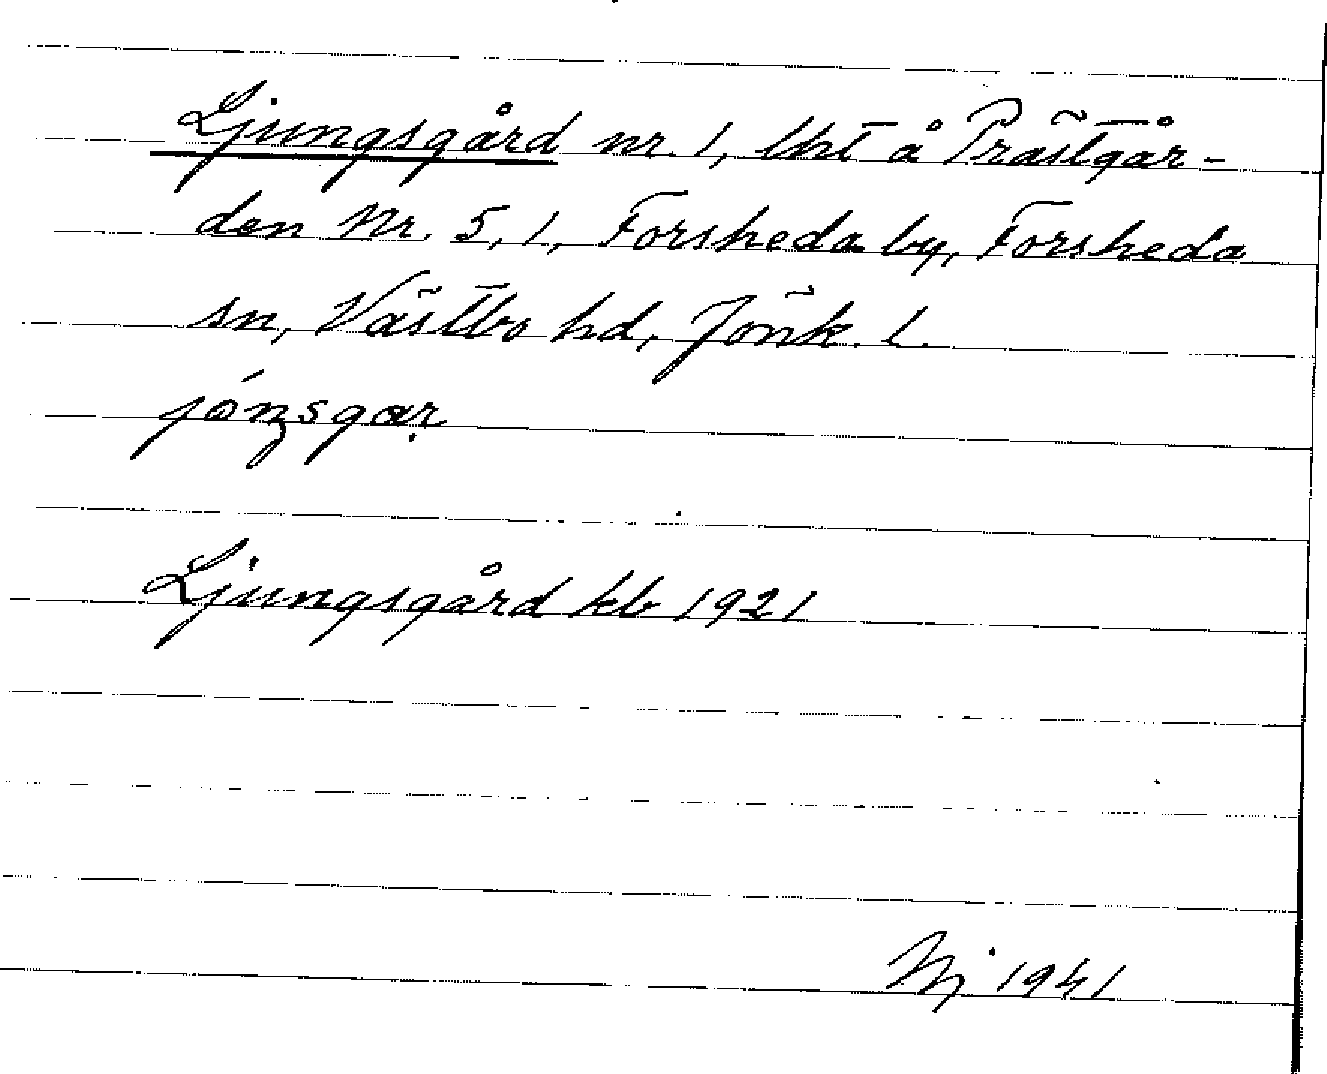 Ljungsgård nr. 1, lht å Prästgår-
den Nr. 5, 1, Forsheda by, Forsheda
sn, Västbo hd, Jönk. l.
jónzsgar
Ljungsgård kb 1921
Nj 1941